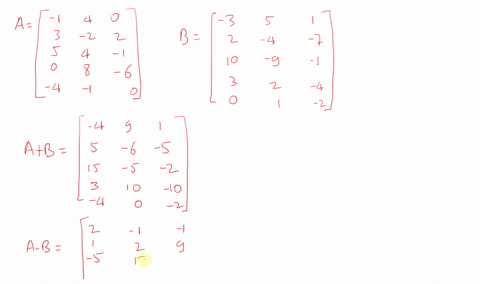 A = [ -1 4 0
3 -2 2
5 4 -1
0 8 -6
-4 -1 0 ]
B = [ -3 5 1
2 -4 -7
10 -9 -1
3 2 -4
0 1 -2 ]
A+B = [ -4 9 1
5 -6 -5
15 -5 -2
3 10 -10
-4 0 -2 ]
A-B = [ 2 -1 -1
1 2 9
-5 1